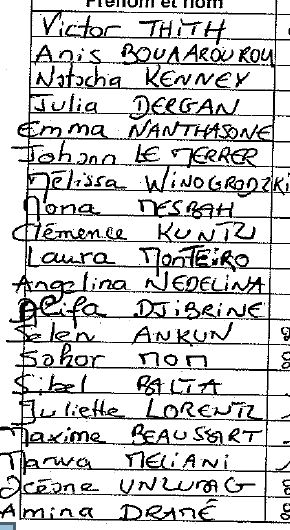 Prénom et nom
Victor THITH
Anis BOUAAROUROU
Natacha KENNEY
Julia DERGAN
Emma NANTHASONE
Johann LE MERRER
Mélissa WINOGRODZKI
Mona MESBAH
Clémence KUNTZ
Laura MONTEIRO
Angelina NEDELINA
Alifa DJIBRINE
Selen ANKUN
Sahar MOM
Sibel BALTA
Juliette LORENTZ
Maxime BEAUSSART
Marwa MELIANI
Océane
Amina DRAMÉ